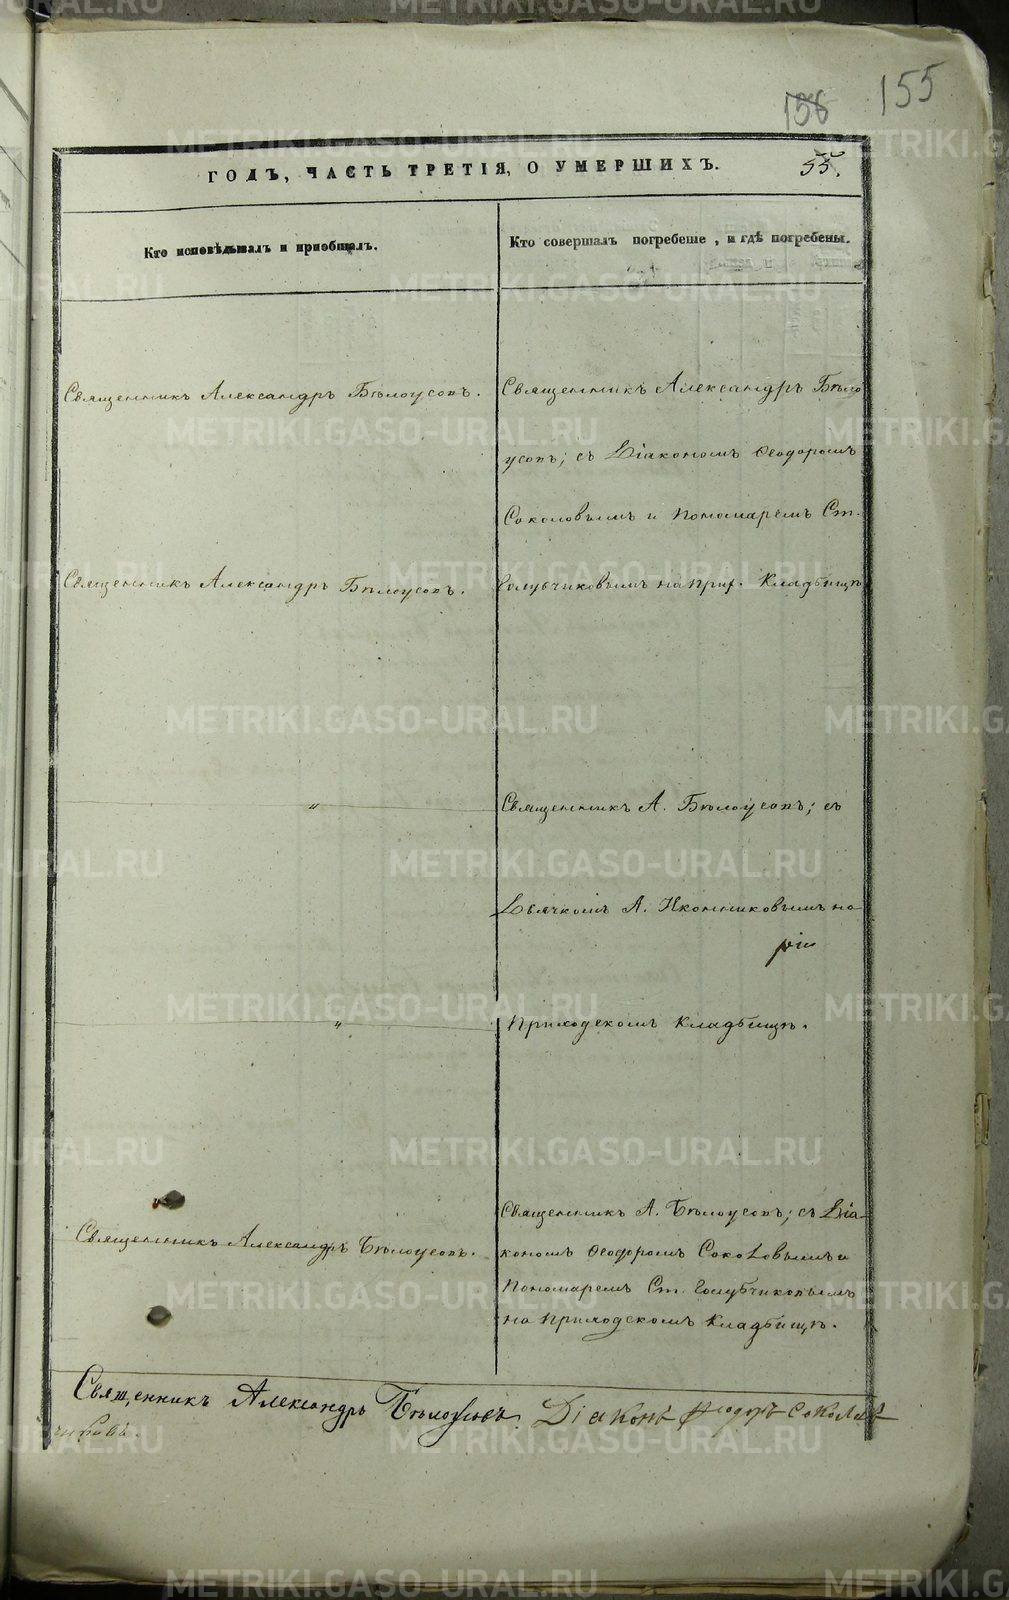 155
156
ГОДЪ, ЧАСТЬ ТРЕТІЯ, О УМЕРШИХЪ.
55.
Кто исповѣдывалъ и пріобщалъ.
Кто совершалъ погребеніе, и гдѣ погребены.
Священникъ Александръ Бѣлоусовъ.
Священникъ Александръ Бѣло
усовъ; съ Діакономъ Ѳеодоромъ
Соколовымъ и Пономаремъ Ст.
Священникъ Александръ Бѣлоусовъ.
Голубчиковымъ на прих. Кладбищѣ
"
Священникъ А. Бѣлоусовъ; съ
Дьячкомъ А. Иконниковымъ на
"
Приходскомъ Кладбищѣ.
Священникъ Александръ Бѣлоусовъ.
Священникъ А. Бѣлоусовъ; съ Діа-
кономъ Ѳеодоромъ Соколовымъ и
Пономаремъ Ст. Голубчиковымъ
на Приходскомъ Кладбищѣ.
Священникъ Александръ Бѣлоусовъ. Діаконъ Ѳеодоръ Соколовъ
чиковъ.
METRIKI.GASO-URAL.RU